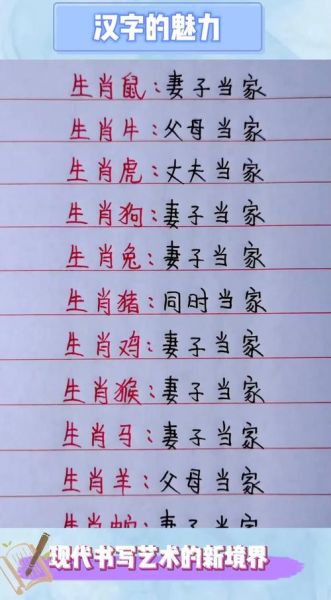 汉字的魅力
生肖鼠:妻子当家
生肖牛:父母当家
生肖虎:丈夫当家
生肖狗:妻子当家
生肖兔:妻子当家
生肖猪:同时当家
生肖鸡:妻子当家
生肖猴:妻子当家
生肖马:妻子当家
生肖羊:父母当家
生肖蛇:妻子当家
现代书写艺术的新境界